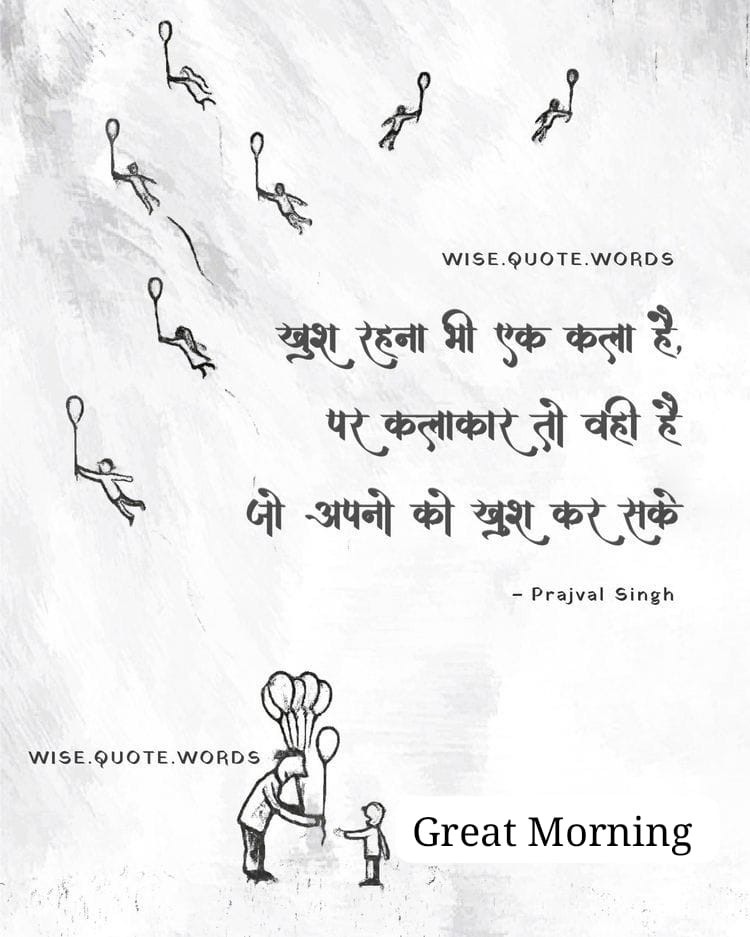 WISE.QUOTE.WORDS
खुश रहना भी एक कला है,
पर कलाकार तो वही है
जो अपनो को खुश कर सके
– Prajval Singh
WISE.QUOTE.WORDS
Great Morning